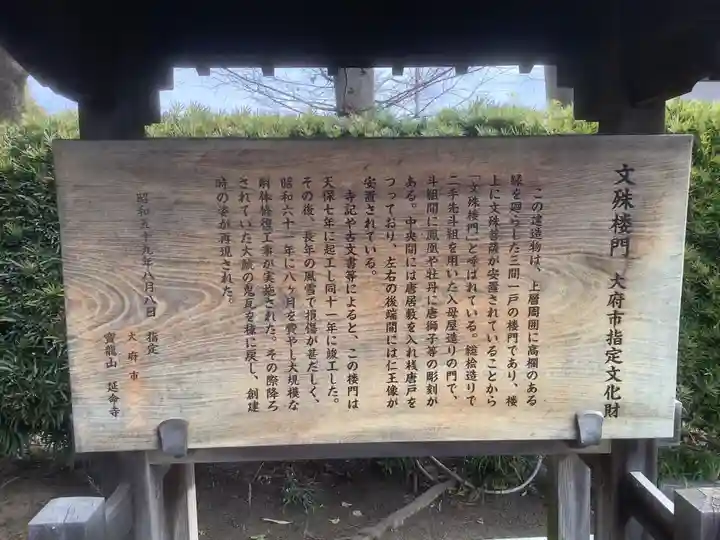 文殊楼門 大府市指定文化財
この建造物は、上層周囲に高欄のある
縁を廻らした三間一戸の楼門であり、楼
上に文殊菩薩が安置されていることから
「文殊楼門」と呼ばれている。総桧造りで
二手先斗組を用いた入母屋造りの門で、
斗組間に鳳凰や牡丹に唐獅子等の彫刻が
ある。中央間には唐居敷を入れ桟唐戸を
つっており、左右の後端間には仁王像が
安置されている。
寺記や古文書等によると、この楼門は
天保七年に起工し同十一年に竣工した。
その後、長年の風雪で損傷が甚だしく、
昭和六十一年に八ヶ月を費やし大規模な
解体修復工事が実施された。その際降ろ
されていた大棟の鬼瓦を棟に戻し、創建
時の姿が再現された。
昭和五十九年八月八日 指定
大府市
寶龍山 延命寺